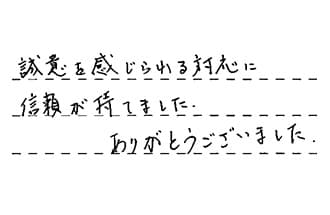 誠意を感じられる対応に
信頼が持てました.
ありがとうございました.